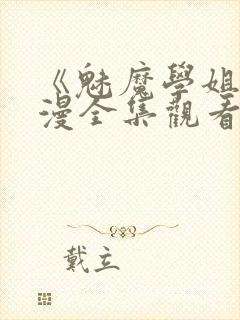 《魅魔學姐
漫全集觀看
戴立